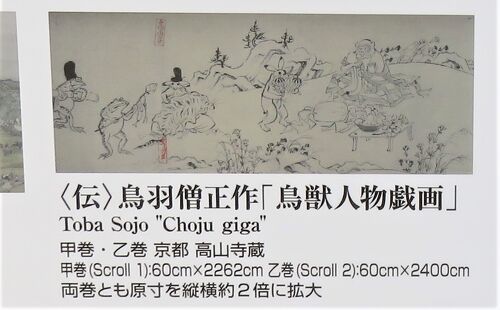 〈伝〉鳥羽僧正作「鳥獣人物戯画」
Toba Sojo "Choju giga"
甲巻・乙巻 京都 高山寺蔵
甲巻(Scroll 1):60cm×2262cm 乙巻(Scroll 2):60cm×2400cm
両巻とも原寸を縦横約２倍に拡大